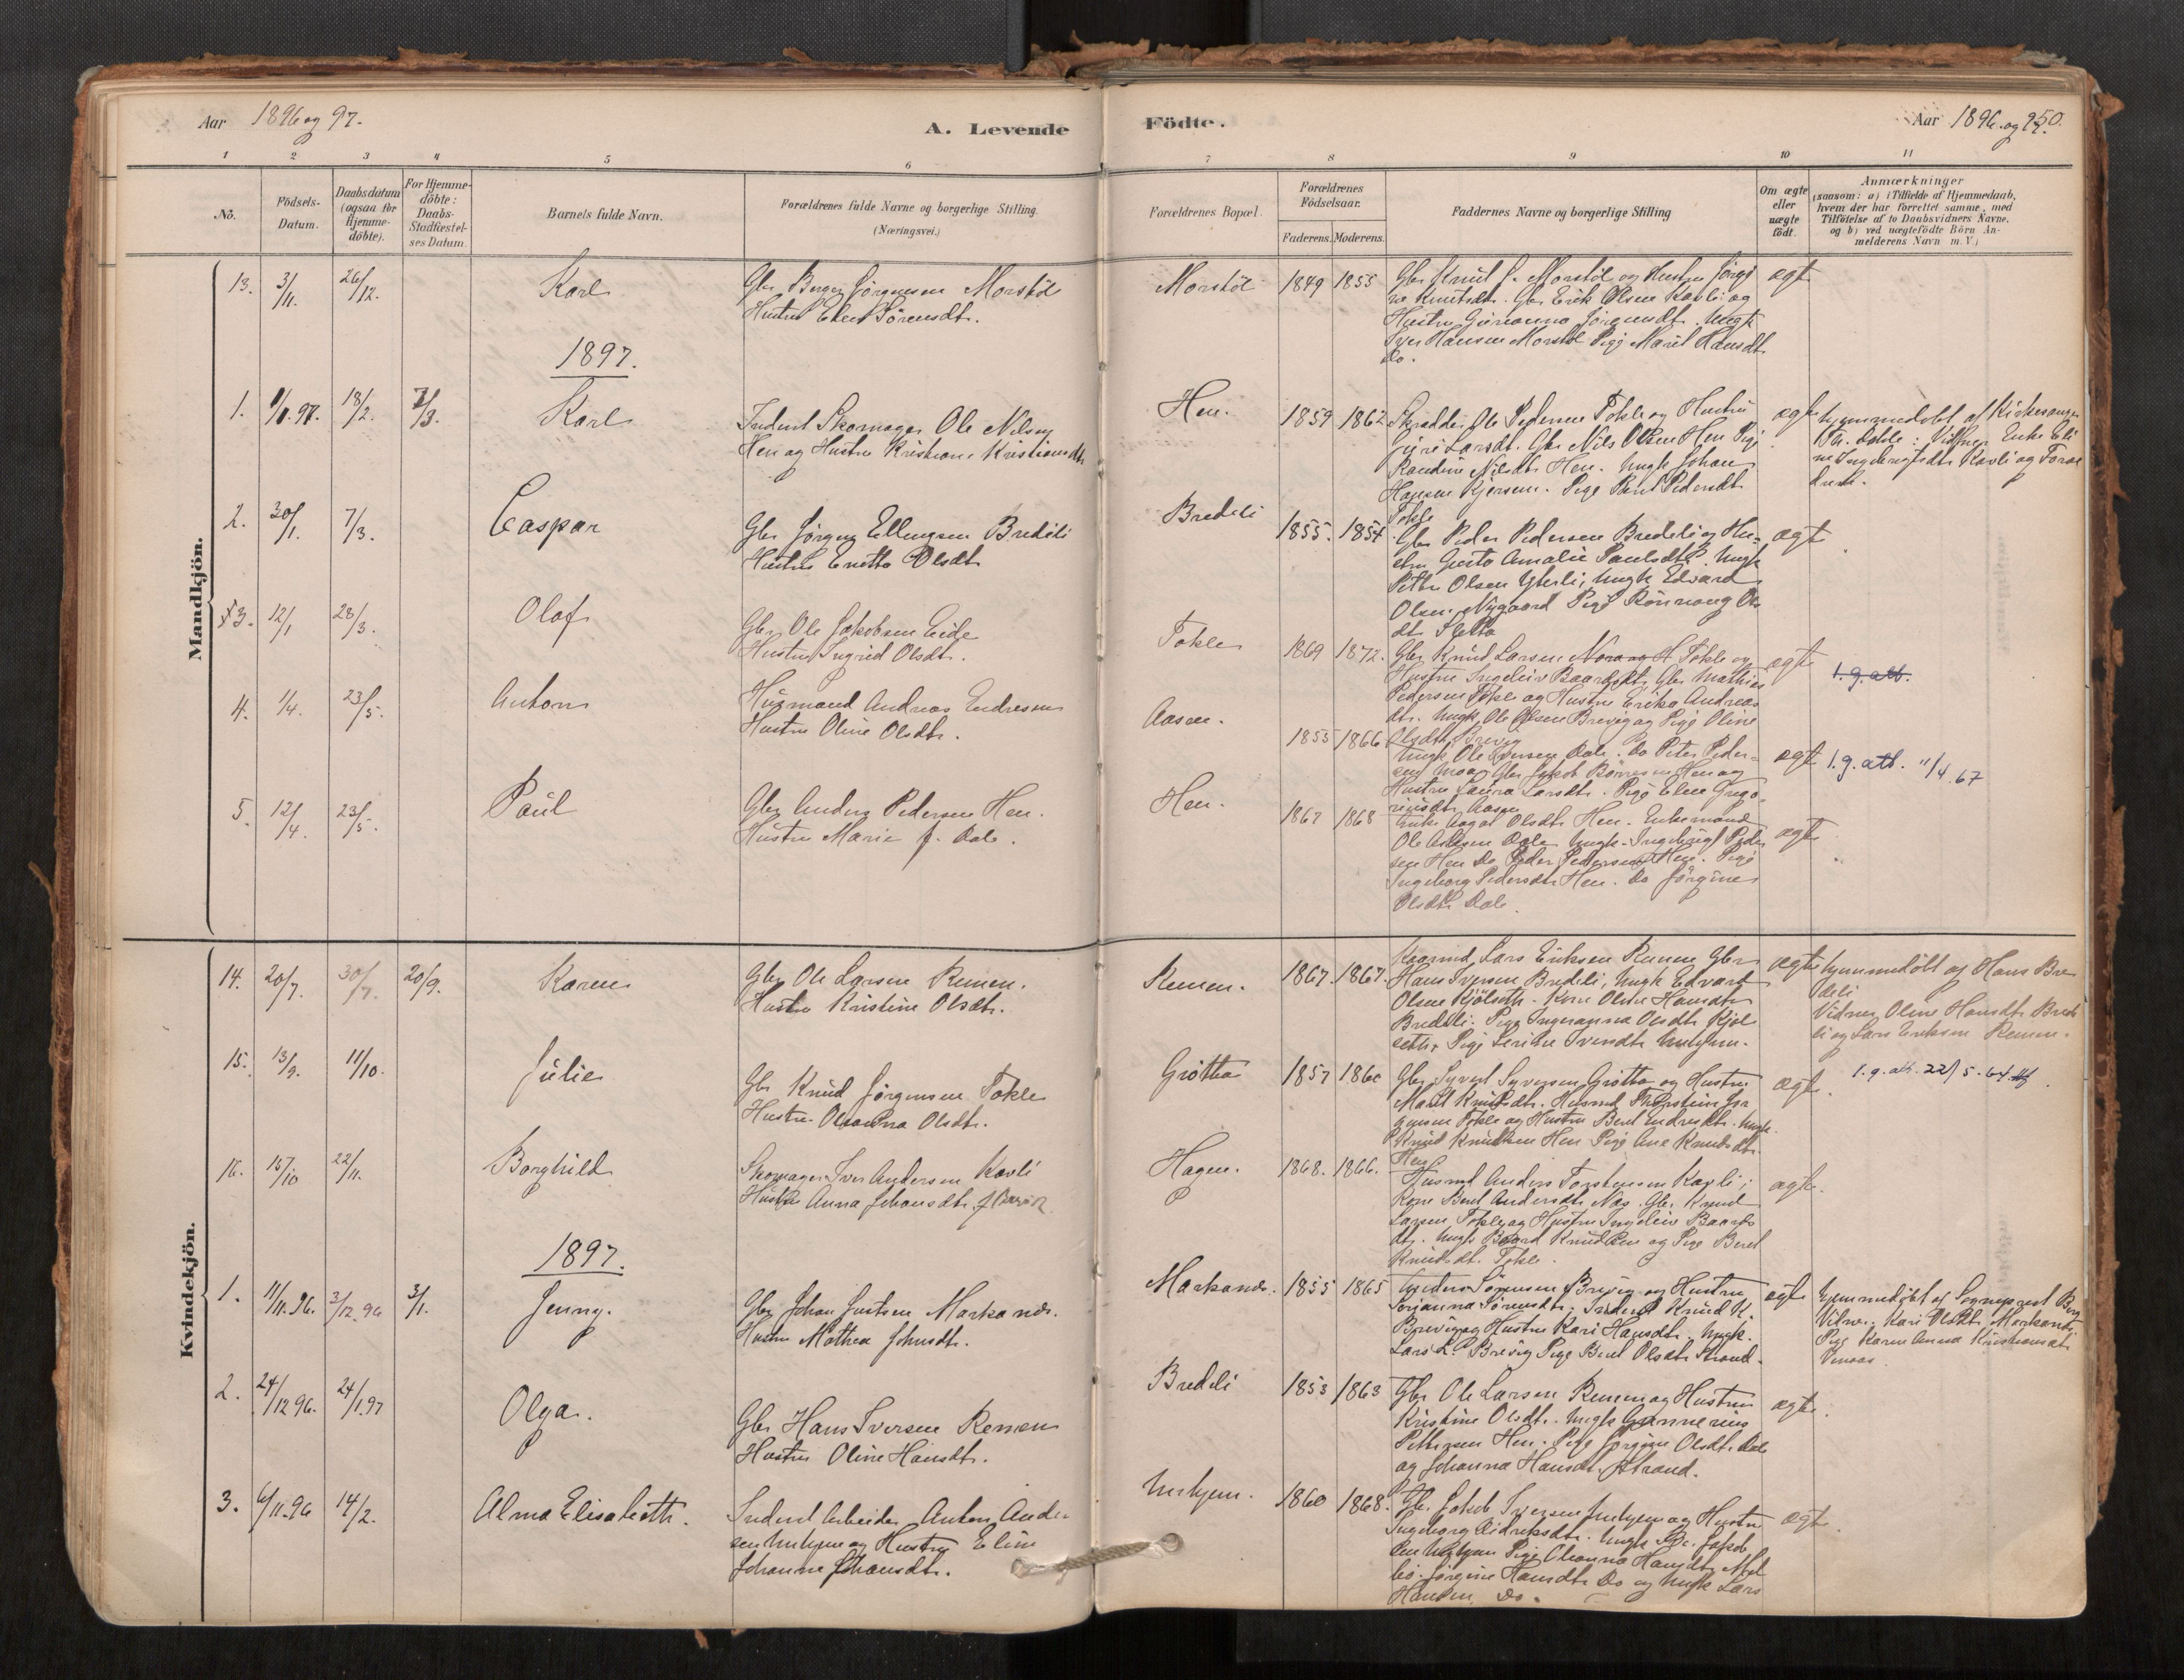 Aar 1896 og 97.
A. Levende Födte.
Aar 1896 og 97. 250.
1 2 3 4 5 6 7 8 9 10 11
No.
Födsels-Datum.
Daabsdatum (ogsaa for Hjemme-döbte).
For Hjemme-döbte: Daabs-Stadfæstel-ses Datum.
Barnets fulde Navn.
Forældrenes fulde Navne og borgerlige Stilling.
(Næringsvei.)
Forældrenes Bopæl.
Forældrenes Födselsaar.
Faderens. Moderens.
Faddernes Navne og borgerlige Stilling
Om ægte eller uægte födt.
Anmærkninger
(saasom: a) i Tilfælde af Hjemmedaab,
hvem der har forrettet samme, med
Tilföielse af to Daabsvidners Navne,
og b) ved uægtefödte Börn An-
melderens Navn m. V.)
Mandkjön.
13. 3/11. 26/12. Karl
Gbr Jörgensen Morstöl
Hustru Elen Sörensdt.
Morstöl 1849 1855
Gbr Knud J. Morstöl og Hustru Jörgi
ne Knutsdt. Gbr Erik Olsen Kavli og
Hustru Jörgensdt. Ungk
Iver Hansen Morstöl Pige Marit Hansdt
Do.
ægte
1897.
1. 18/2. 7/3. Karl
Inderst Skomager Ole Nilsen
Hen og Hustru Kristiane Kristiansdt
Hen. 1859 1862
Skrædder Ole Pedersen Tokle og Hustru
Larsdt. Gbr Nils Olsen Hen Pige
Randine Nilsdt Hen. Ungk Johan
Hansen Pige Berit Pedersdt
Tokle
ægte
hjemmedöbt af Kirkesanger
Th. Dahle: Vidner Enke Eli
ne Ingebrigtsdt Kavli og Foræl
drene.
2. 30/1. 7/3. Caspar
Gbr Jörgen Ellingsen Bredeli
Hustru Olsdt
Bredeli 1855. 1854
Gbr Peder Pedersen Bredeli og Hu-
stru Amalie Paulsdt. Ungk
Petter Olsen Ytterli, Ungk Edvard
Olsen Nygaard Pige Rönnaug Ols
dt Sletta
ægte
3. 12/1 28/3. Olaf
Gbr Ole Jakobsen Eide
Hustru Ingrid Olsdt.
Tokle 1869 1872.
Gbr Knud Larsen Tokle og
Hustru Ingeleiv Baardsdt, Gbr Mathias
Pedersen Tokle og Hustru Erika Andreas
dt. Ungk Ole Olsen Brevig og Pige Oline
Olsdt Brevig
ægte
1.g.att.
4. 1/4. 23/5. Anton
Husmand Andreas Endresen
Hustru Oline Olsdt.
Aasen. 1855 1866
Ungk Ole Iversen Dale. Do Peter Peder-
sen Moa, Gbr Jakob Hen og
Hustru Laura Larsdt. Pige Elen Grego-
riusdt Aasen
ægte
1.g.att. 11/4.67
5. 12/4. 23/5. Paul
Gbr Anders Pedersen Hen.
Hustru Marie f. Dale.
Hen. 1867 1868
Enke Aagot Olsdt Hen. Enkemand
Ole Dale Ungk. Ingebrigt Peder
sen Hen Do Peder Pedersen Hen. Pige
Ingeborg Pedersdt Hen. Do Jörgine
Olsdt Dale.
ægte
Kvindekjön.
14. 20/7. 30/7. 20/9. Karen
Gbr Ole Larsen Remen.
Hustru Kristine Olsdt.
Remen. 1867. 1867.
Kaarmd. Lars Eriksen Remen Gbr
Hans Iversen Bredeli, Ungk Edvart
Olsen Kjölseth. Kone Oline Hansdt
Bredeli. Pige Ingeranna Olsdt Kjöl
seth, Pige Iversdt
ægte
hjemmedöbt af Hans Bre
deli
Vidner Oline Hansdt Brede
li og Lars Eriksen Remen.
15. 13/9. 11/10. Julie
Gbr Knud Jörgensen Tokle
Hustru Olsdt.
Grötta 1857 1860
Gbr Syvert Syversen Grötta og Hustru
Marit Knudsdt. Husmd Thorstein Jör
gensen Tokle og Hustru Berit Endresdt. Ungk.
Knud Knudsen Hen Pige Ane Knudsdt
Hen
ægte.
1.g.att. 22/5.64
16. 15/10 22/11. Borghild
Skomager Iver Andersen Kavli
Hustru Anna Johansdt.
Hagen. 1868. 1866.
Husmd Anders Torstensen Kavli;
Kone Berit Andersdt Næs. Gbr. Knud
Larsen Tokle og Hustru Ingeleiv Baards
dt. Ungk Baard Knudsen og Pige Berit
Knudsdt. Tokle.
ægte.
1897.
1. 11/11.96. 3/12.96 3/1. Jenny.
Gbr Johan Justsen Markanes.
Hustru Mathea Johnsdt.
Markanes. 1855 1865
Anders Sörensen Brevig og Hustru
Sörensdt; Inderst Knud K.
Brevig og Hustru Kari Hansdt. Ungk.
Lars L. Brevig Pige Berit Olsdt Strand.
ægte
hjemmedöbt af Sogneprest Berg
Vidner. Kari Olsdt. Markanes
Pige Karen Anna Kristiansdt
2. 24/12 96. 24/1.97 Olga.
Gbr Hans Iversen Remen
Hustru Oline Hansdt.
Bredeli 1853 1863
Gbr Ole Larsen Remen og Hustru
Kristine Olsdt. Ungk
Pettersen Hen. Pige Jörgine Olsdt. Dale
og Johanna Hansdt. Strand.
ægte.
3. 6/11.96 14/2. Alma Elisabeth.
Inderst Arbeider Anton Ander-
sen og Hustru Eline
Johanne Johansdt.
1860 1868.
Gbr. Jakob Iversen og Hustru
Ingeborg Didriksdt. Ungk Jakob
sen Pige Hansdt
Jörgine Hansdt Do og Ungk Lars
Hansen Do.
ægte.